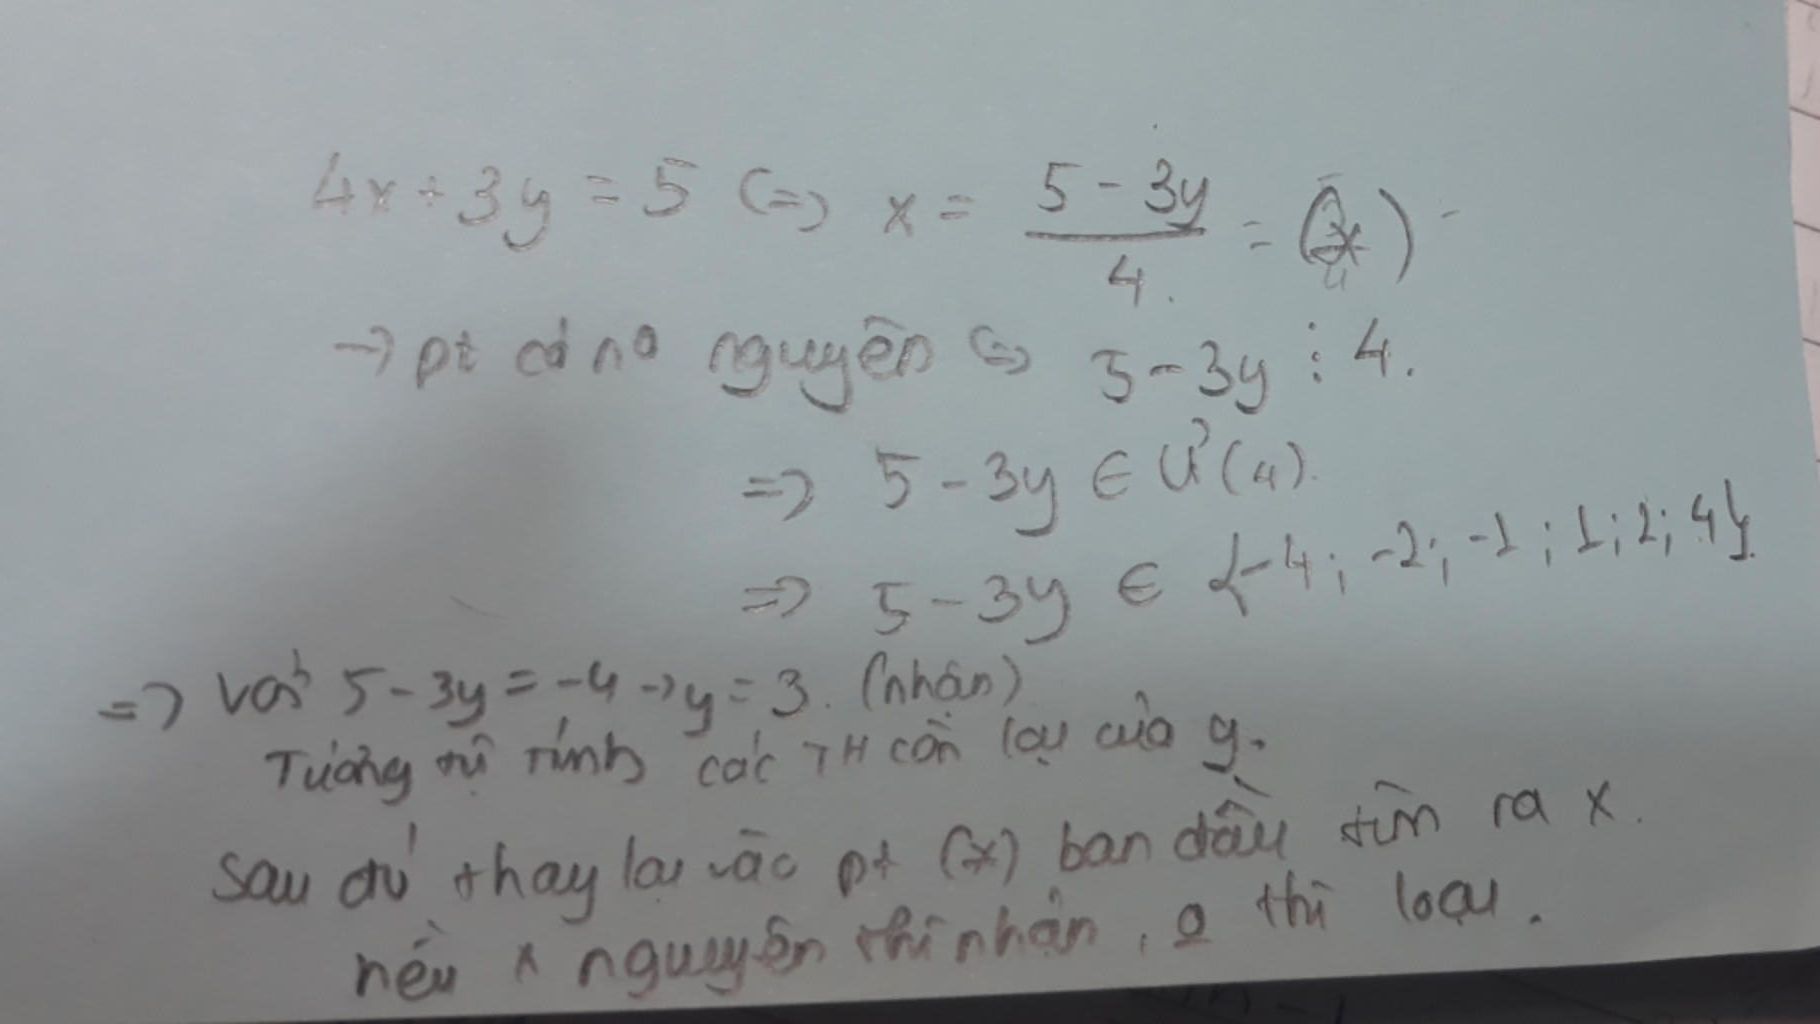 4x + 3y = 5 (=) x = 5 - 3y / 4. = (*)
→ pt có no nguyên (=) 5 - 3y ⋮ 4.
=> 5 - 3y ∈ Ư(4).
=> 5 - 3y ∈ {-4; -2; -1; 1; 2; 4}.
=> Với 5 - 3y = -4 → y = 3. (nhận)
Tương tự tính các TH còn lại của y.
Sau đó thay lại vào pt (*) ban đầu tìm ra x.
nếu x nguyên thì nhận, o thì loại.